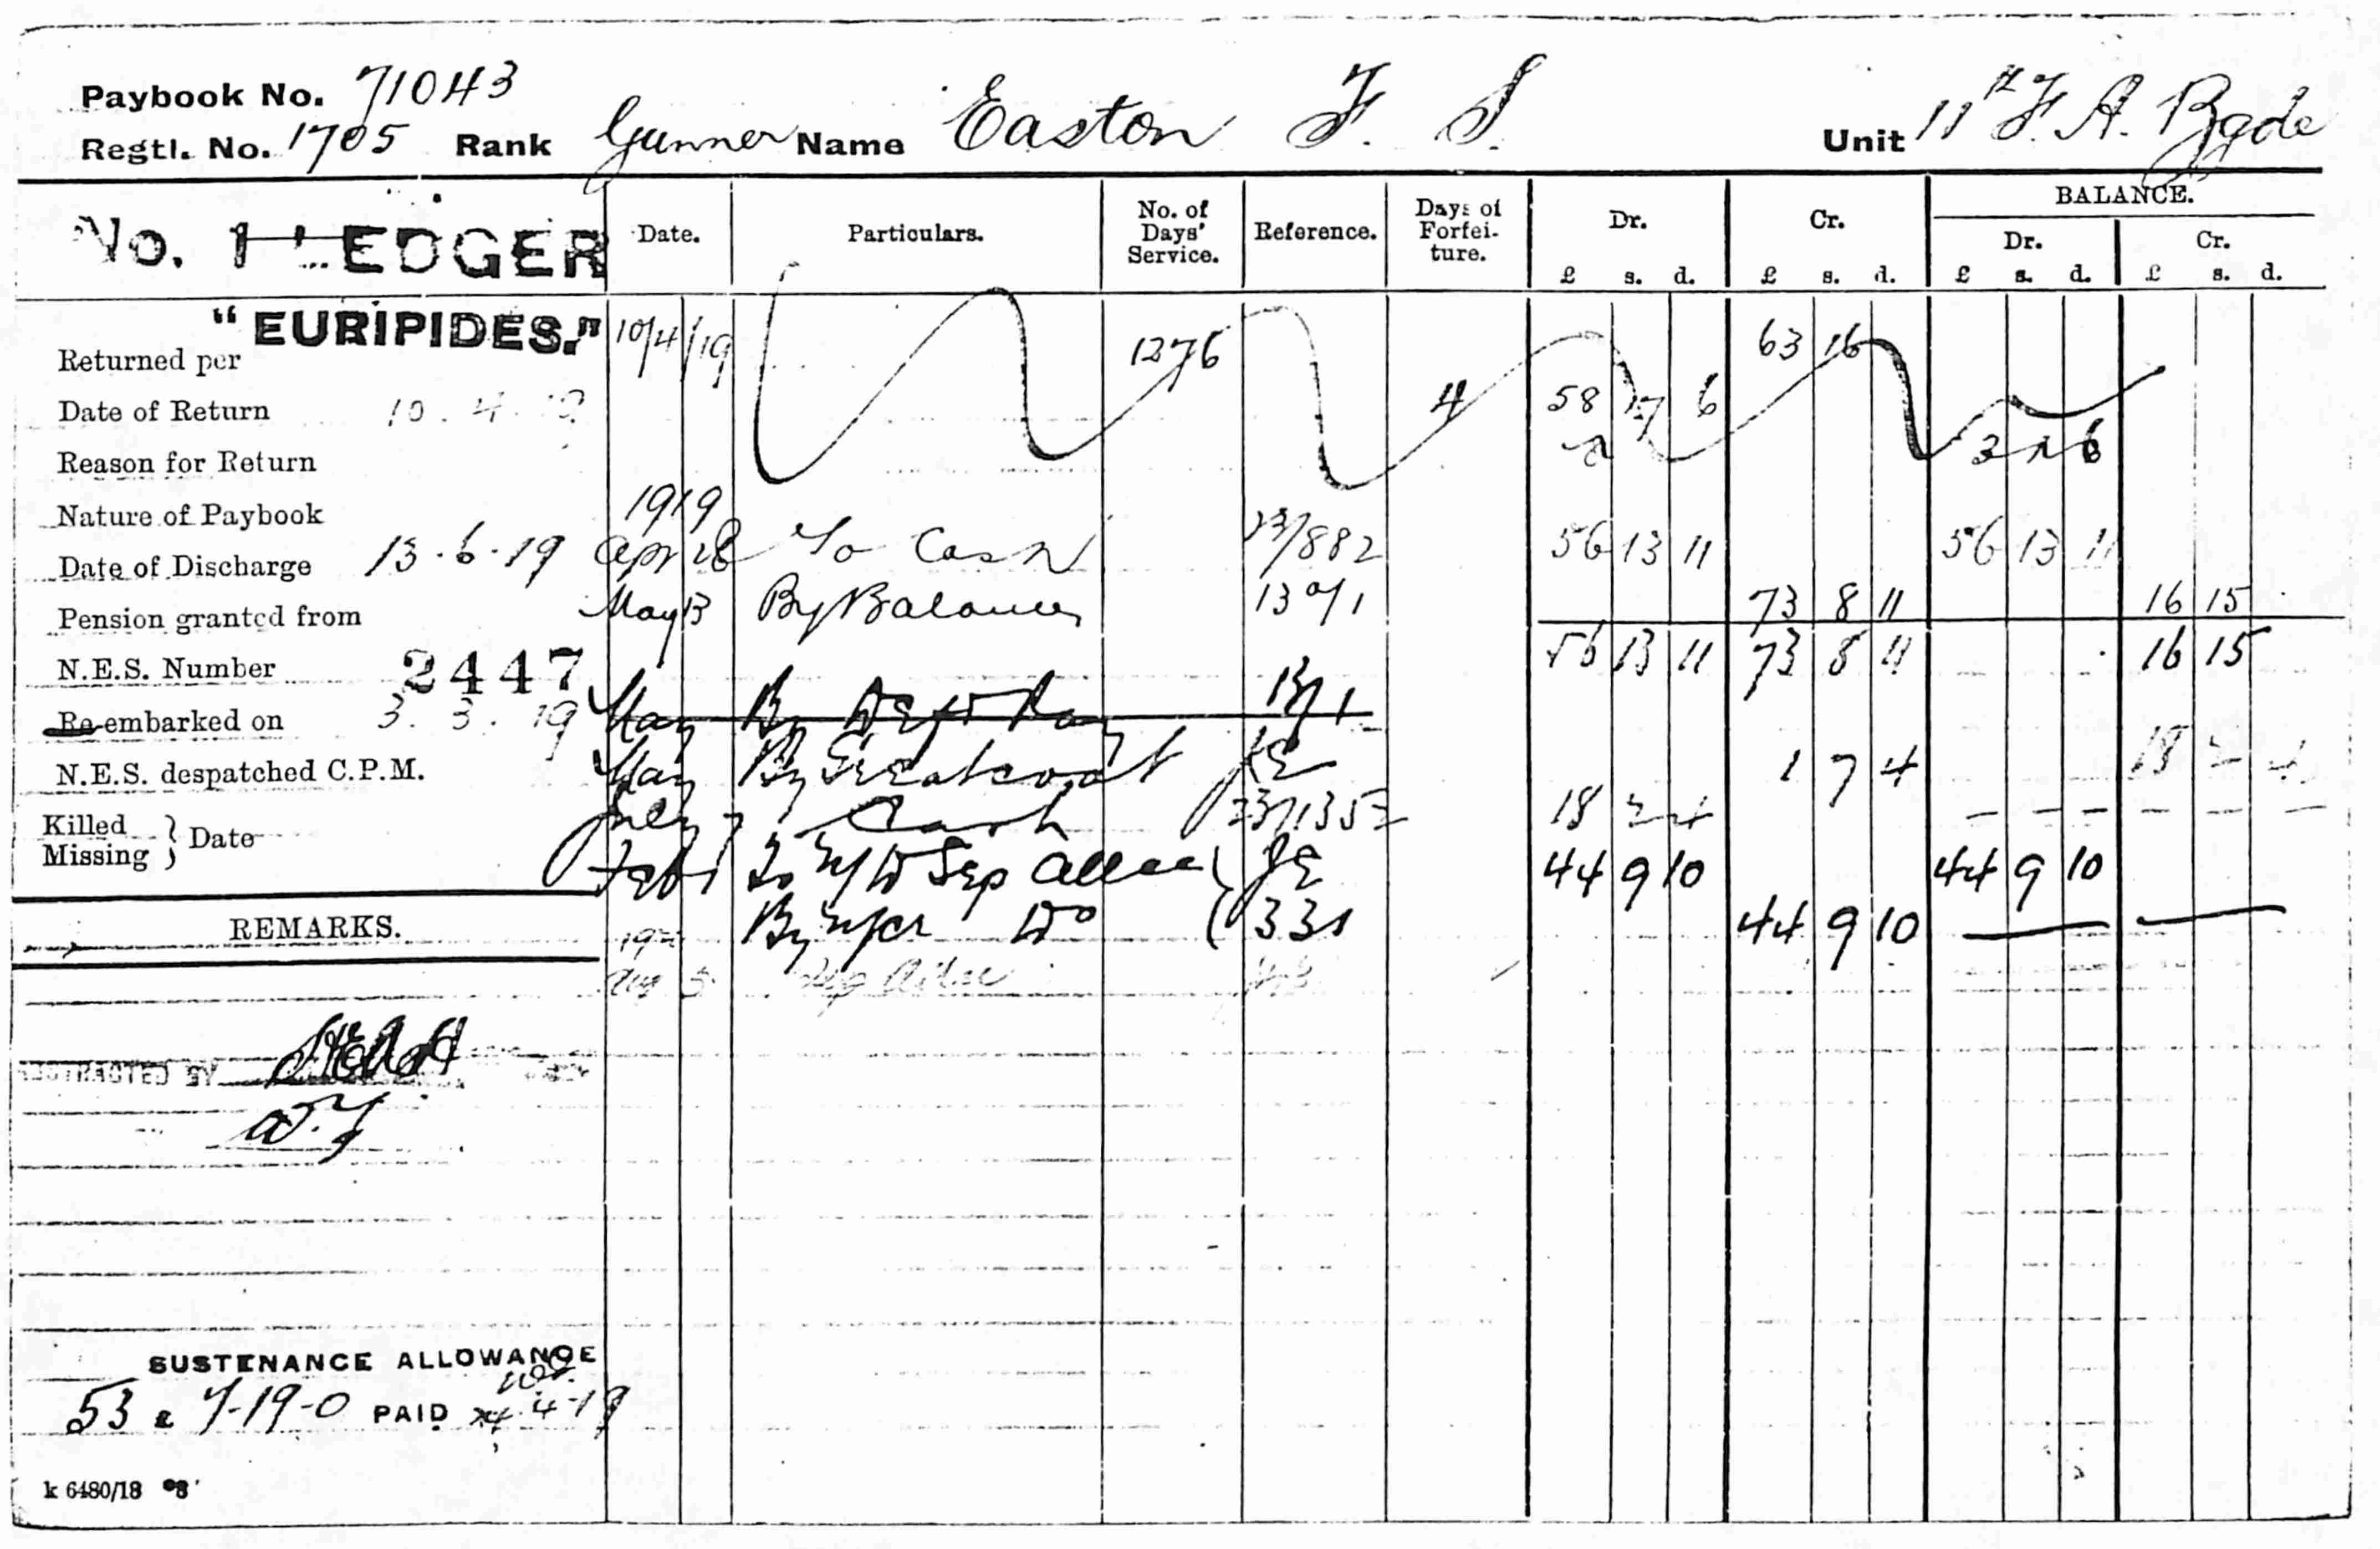 Paybook No. 71043
Regtl. No. 1705 Rank Gunner Name Easton F. S. Unit 11th F. A. Bgde
No. 1 LEDGER Date. Particulars. No. of Days' Service. Reference. Days of Forfei-ture. Dr. Cr. BALANCE.
Dr. Cr.
£ s. d. £ s. d. £ s. d. £ s. d.
Returned per "EURIPIDES." 10/4/19 1276 63 16
Date of Return 10. 4. 19 4 58 17 6
Reason for Return
Nature of Paybook 1919
Date of Discharge 13.6.19 Apr 28 To Cash 23/882 56 13 11 56 13 11
Pension granted from May 13 By Balance 73 8 11 16 15
N.E.S. Number 2447 56 13 11 73 8 11 16 15
Re-embarked on 3. 3. 19 May By Defd Pay 13/1
N.E.S. despatched C.P.M. May By Greatcoat JE 1 7 4 18 2 4
Killed Missing } Date 7 Cash 23/1352 18 2 4
Feb 1 To Sep Allce JE 44 9 10 44 9 10
REMARKS. By Do 331 44 9 10
Aug 5
SUSTENANCE ALLOWANCE
53 @ 7-19-0 PAID 4-19
k 6480/18